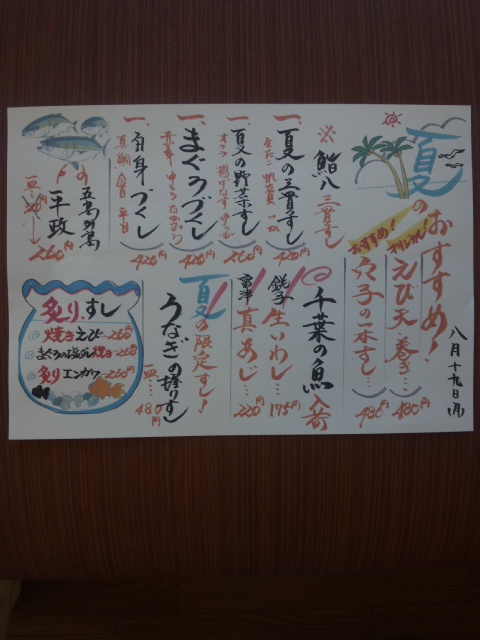 夏のおすすめ！
八月十九日(月)
おすすめ！
オリジナル！
えび天巻き…480円
穴子の一本すし…480円
※鮨八 三貫すし
一、夏の三貫すし 420円
一、夏の野菜すし 260円
一、まぐろづくし 420円
一、白身づくし 420円
五島列島
平政
一皿…260円
千葉の魚入荷
銚子 生いわし…175円
富津 真あじ…220円
夏の限定すし！
うなぎの握りすし
一皿…480円
炙りすし
焼きえび…260円
炙りエンガワ…260円